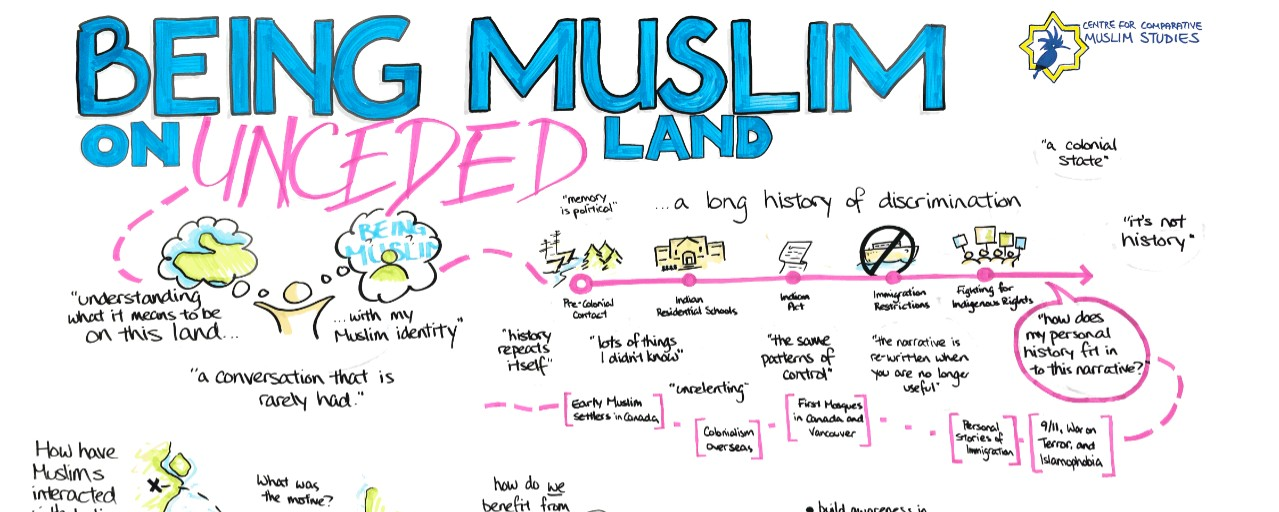 BEING MUSLIM
ON UNCEDED LAND
CENTRE FOR COMPARATIVE
MUSLIM STUDIES
"a colonial
state"
"it's not
history"
"memory
is political"
...a long history of discrimination
BEING
MUSLIM
"understanding
what it means to be
on this land...
...with my
Muslim identity"
"a conversation that is
rarely had."
Pre-Colonial
Contact
Indian
Residential Schools
Indian
Act
Immigration
Restrictions
Fighting for
Indigenous Rights
"how does
my personal
history fit in
to this narrative?"
"history
repeats
itself"
"lots of things
I didn't know"
"unrelenting"
"the same
patterns of
control"
"the narrative is
re-written when
you are no longer
useful"
Early Muslim
settlers in Canada
Colonialism
overseas
First Mosques
in Canada and
Vancouver
Personal
Stories of
Immigration
9/11, War on
Terror, and
Islamophobia
How have
Muslims
interacted
What was
the motive?
how do we
benefit from
• build awareness in